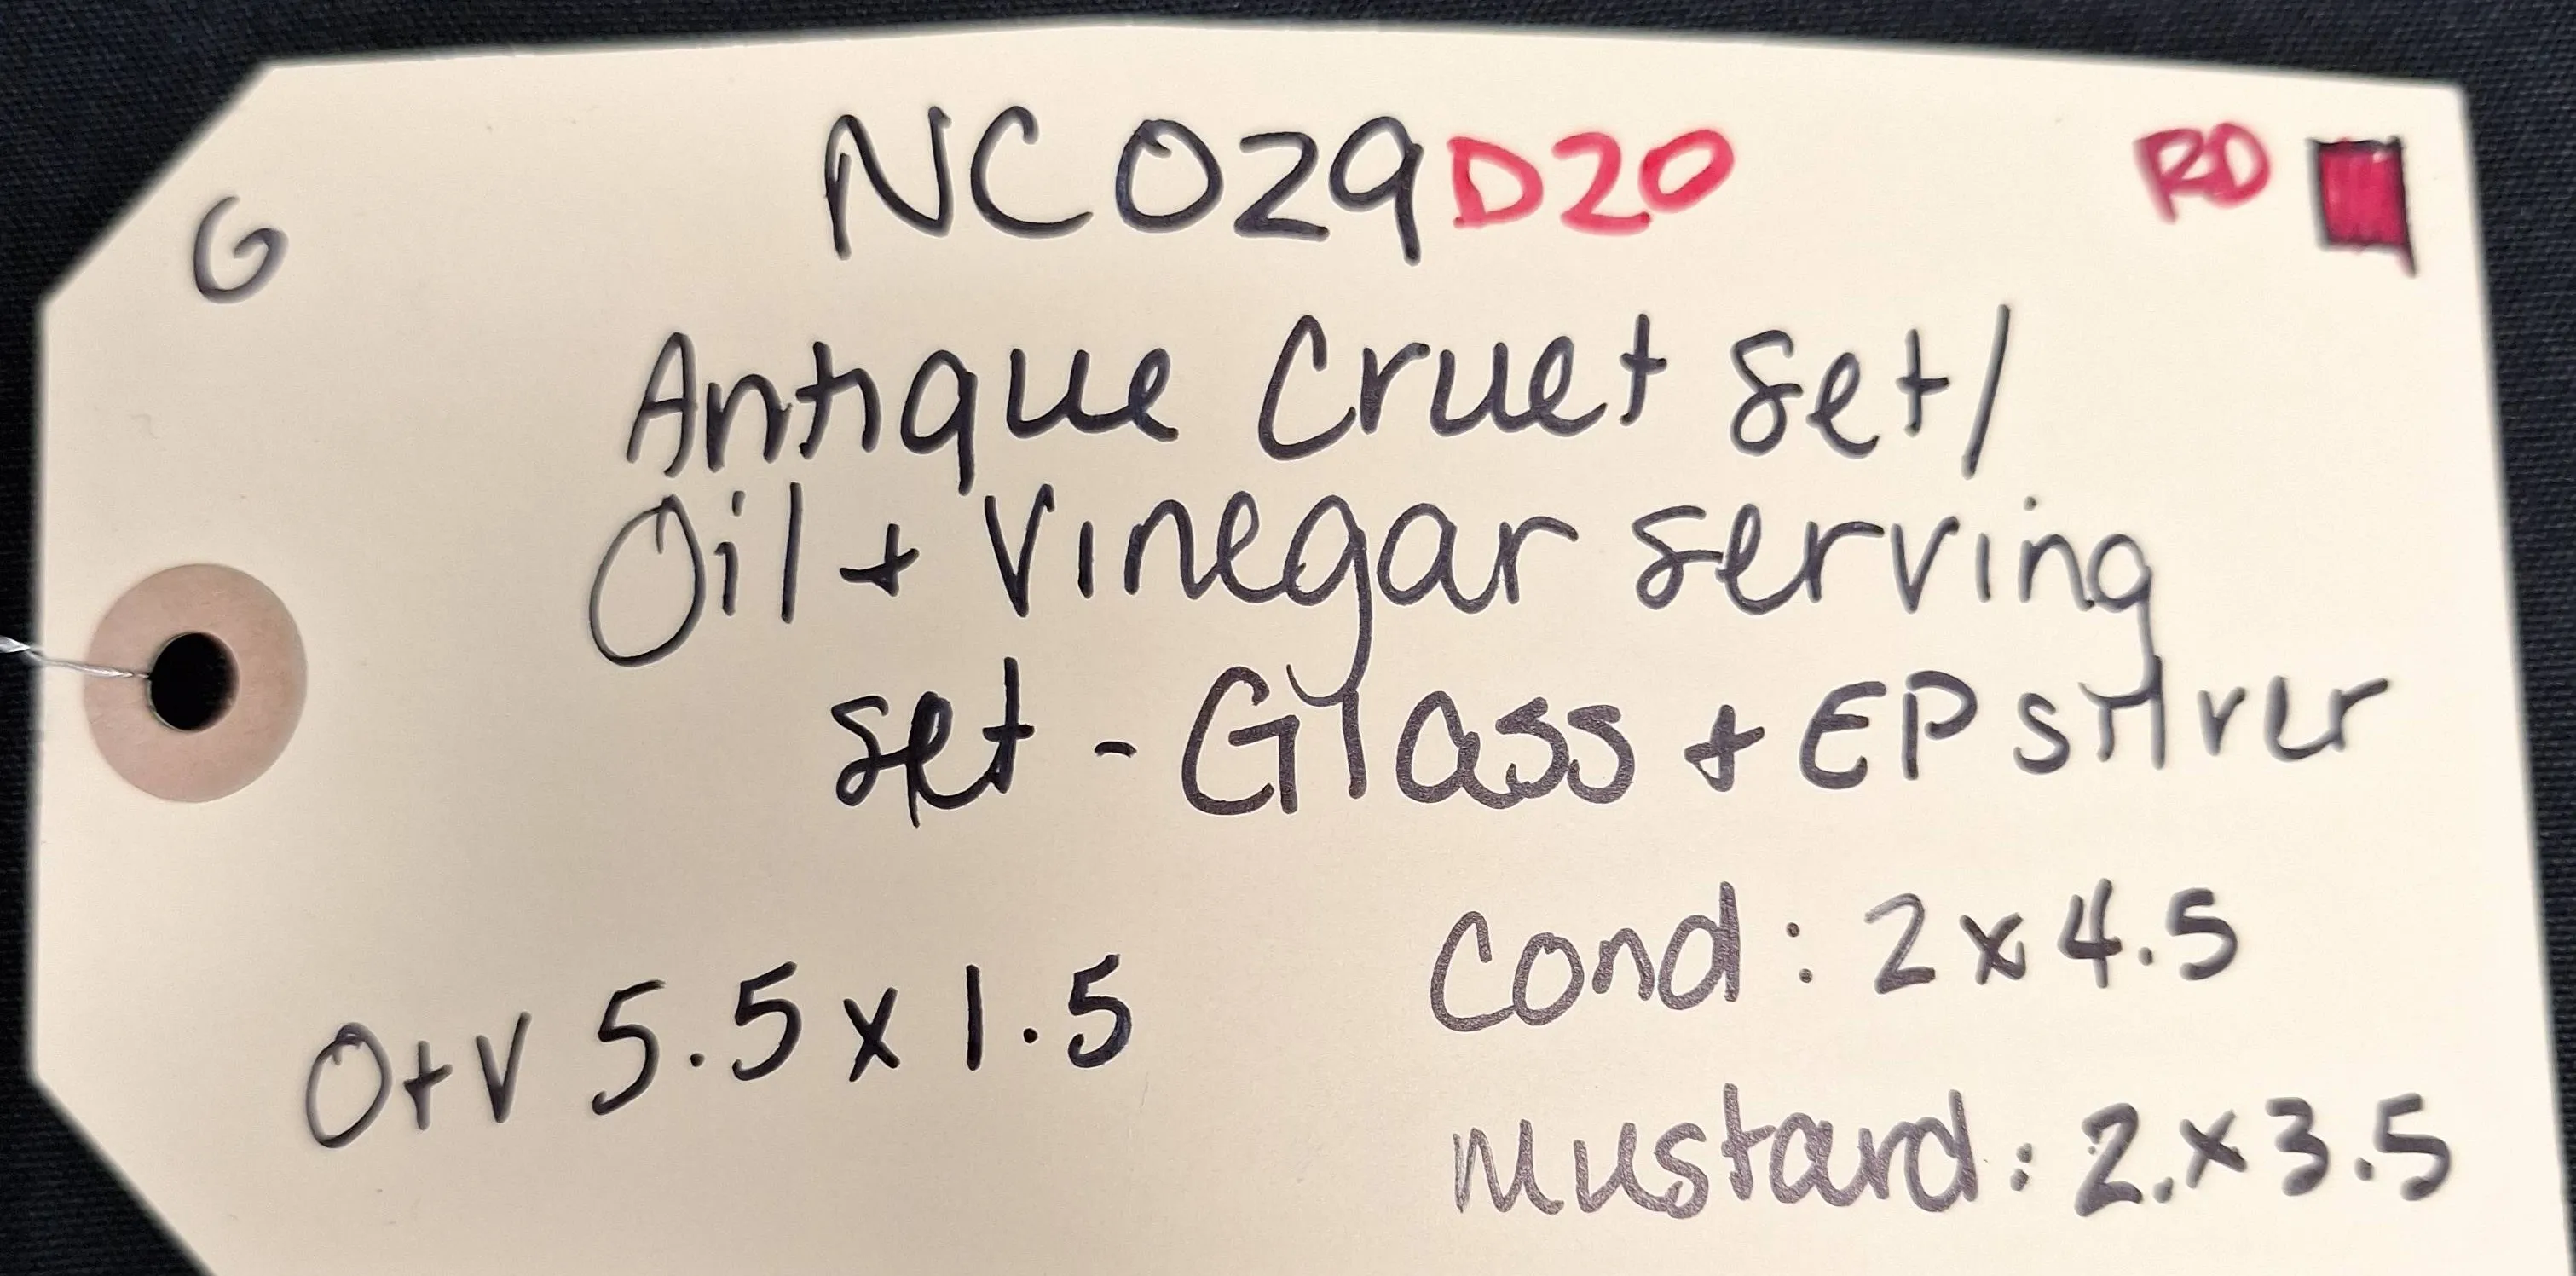 G NCO29D20 RD
Antique Cruet set/
Oil + Vinegar serving
set - Glass + EP silver
Cond: 2 x 4.5
O+V 5.5 x 1.5
Mustard: 2. x 3.5